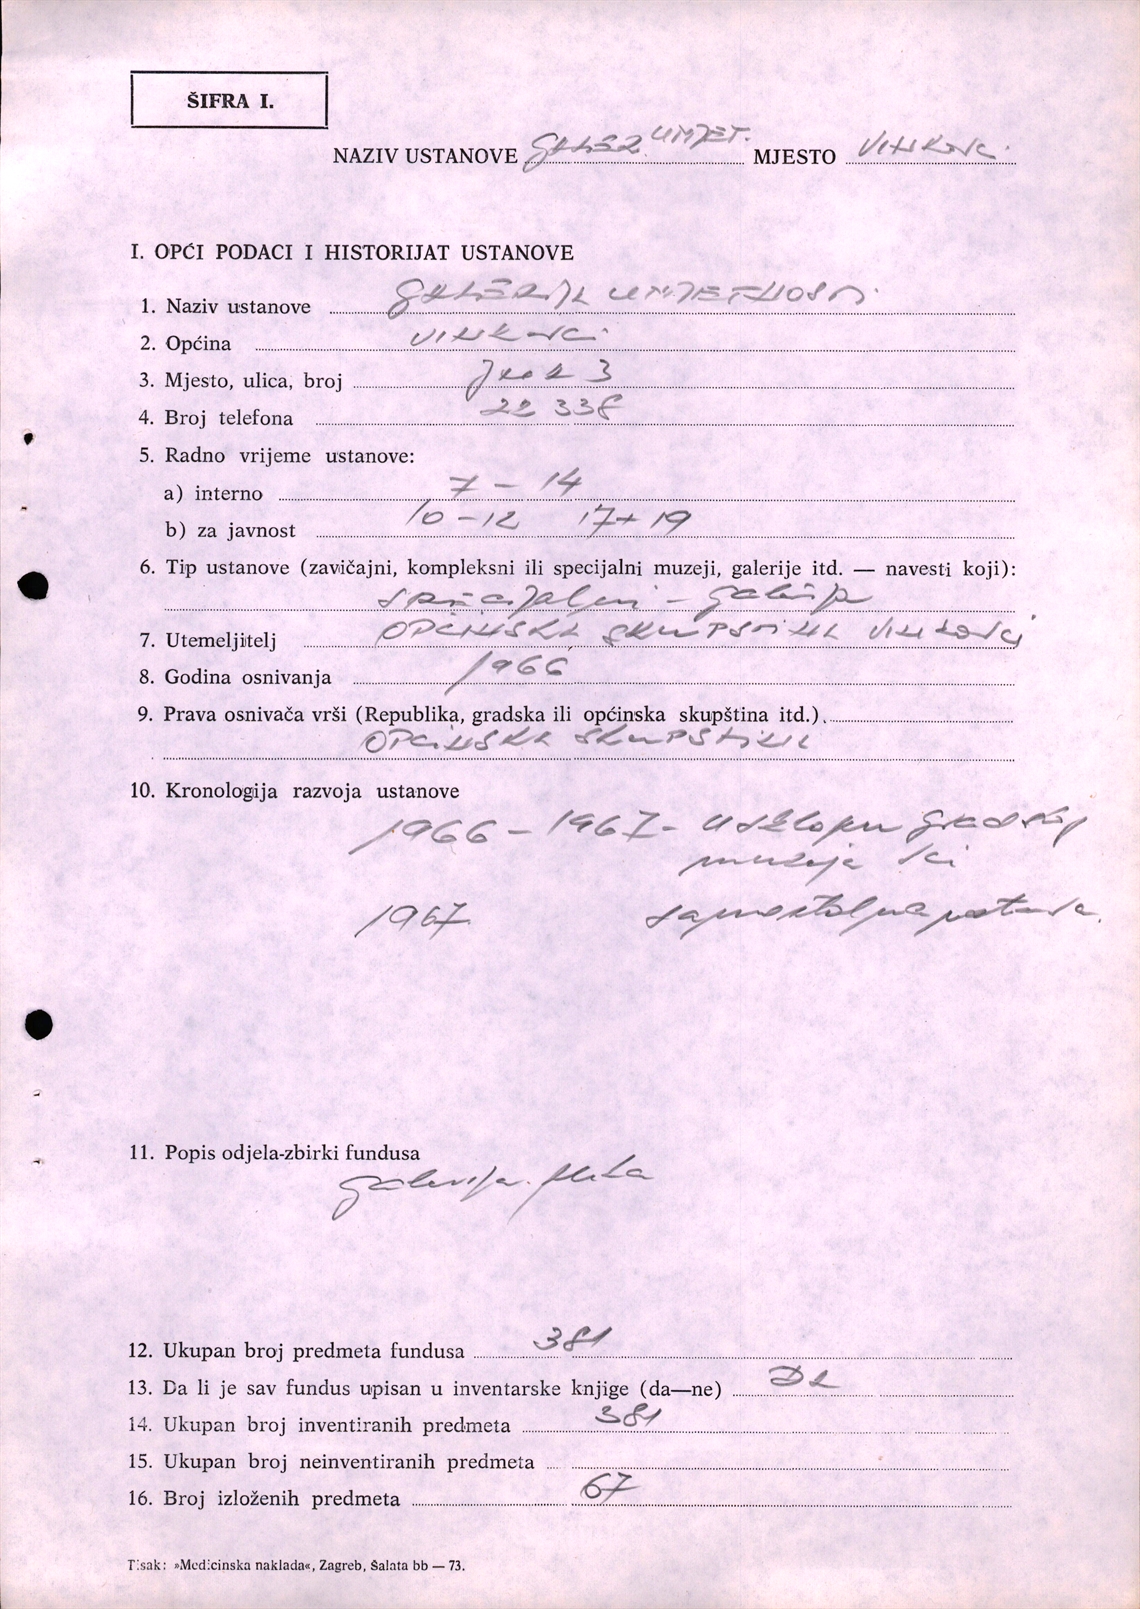 ŠIFRA I.
NAZIV USTANOVE GALER. UMJET. MJESTO VINKOVCI
I. OPĆI PODACI I HISTORIJAT USTANOVE
1. Naziv ustanove GALERIJA UMJETNOSTI
2. Općina VINKOVCI
3. Mjesto, ulica, broj 3
4. Broj telefona 22 338
5. Radno vrijeme ustanove:
a) interno 7 - 14
b) za javnost 10-12 17+19
6. Tip ustanove (zavičajni, kompleksni ili specijalni muzeji, galerije itd. — navesti koji):
specijalni - galerija
7. Utemeljitelj OPĆINSKA SKUPŠTINA VINKOVCI
8. Godina osnivanja 1966
9. Prava osnivača vrši (Republika, gradska ili općinska skupština itd.).
OPĆINSKA SKUPŠTINA
10. Kronologija razvoja ustanove
1966 - 1967 - u sklopu gradskog
muzeja
1967. samostalna ustanova.
11. Popis odjela-zbirki fundusa
galerija
12. Ukupan broj predmeta fundusa 381
13. Da li je sav fundus upisan u inventarske knjige (da—ne) DA
14. Ukupan broj inventiranih predmeta 381
15. Ukupan broj neinventiranih predmeta
16. Broj izloženih predmeta 67
Tisak: »Medicinska naklada«, Zagreb, Šalata bb — 73.